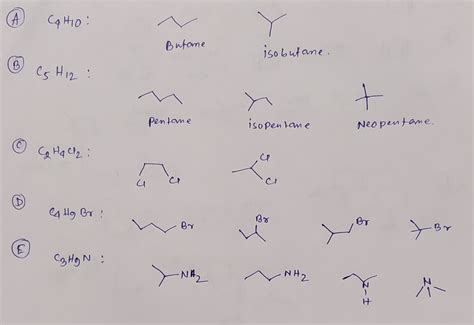 A C4H10 :
Butane isobutane.
B C5H12 :
Pentane isopentane Neopentane.
C C2H4Cl2 : Cl
Cl Cl Cl
D C4H9Br : Br Br Br Br
E C3H9N : NH2 NH2 N N
H